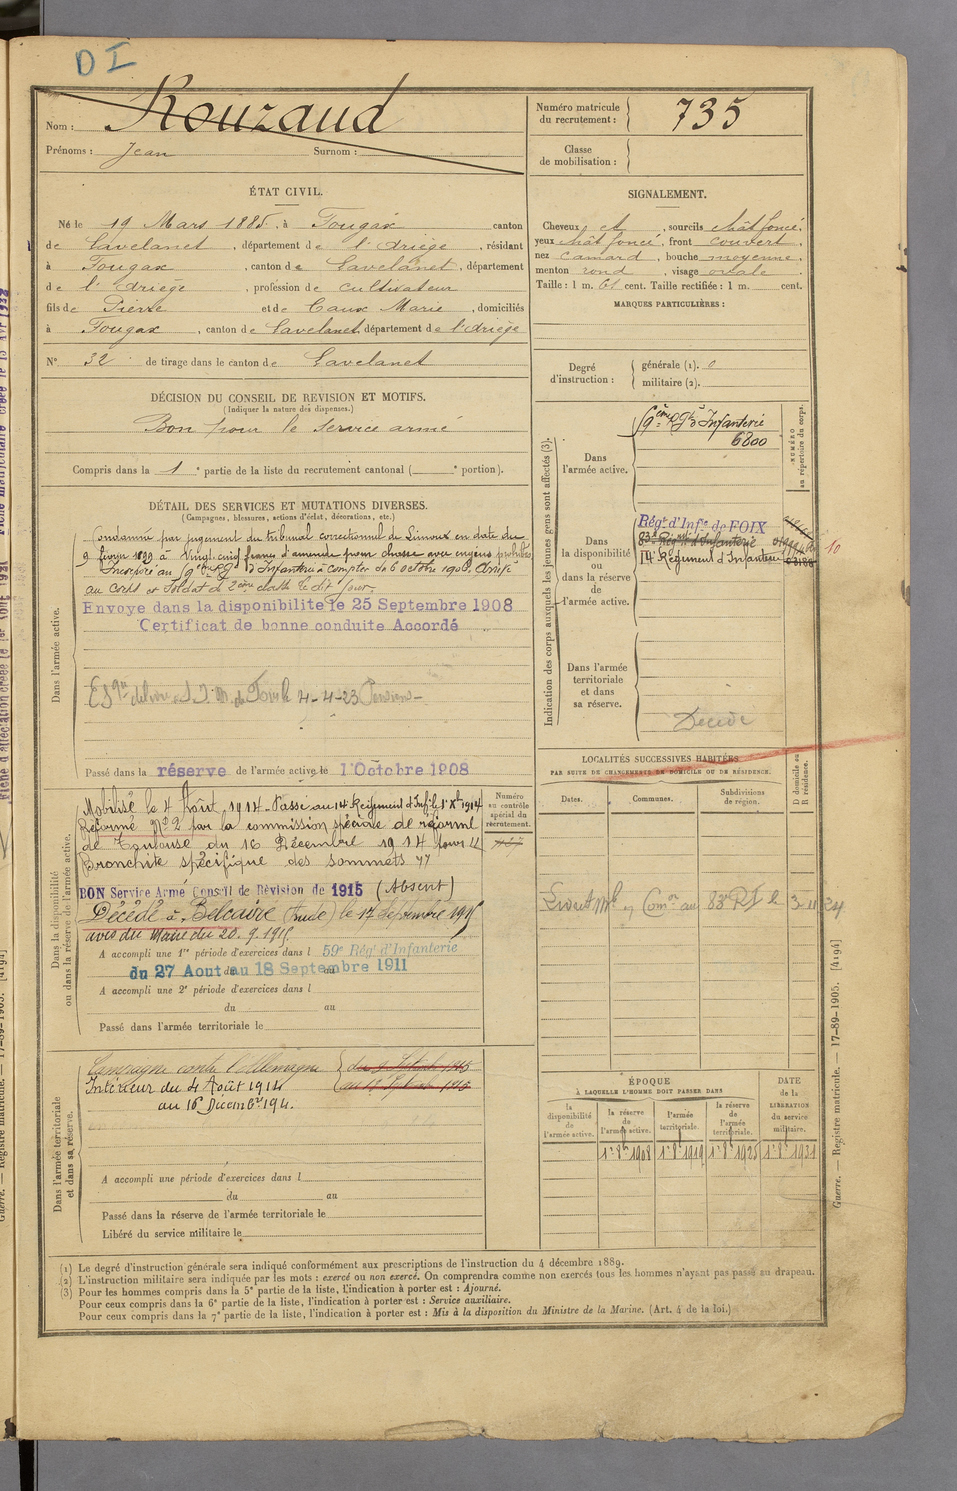 D I
Nom : Rouzaud
Prénoms : Jean Surnom :
Numéro matricule du recrutement : 735
Classe de mobilisation :
ÉTAT CIVIL.
Né le 19 Mars 1885, à Fougax canton
de Lavelanet, département de l'Ariège, résidant
à Fougax, canton de Lavelanet, département
de l'Ariège, profession de cultivateur
fils de Pierre et de Caux Marie, domiciliés
à Fougax, canton de Lavelanet, département de l'Ariège
N° 32 de tirage dans le canton de Lavelanet
SIGNALEMENT.
Cheveux et, sourcils chât foncé,
yeux chât foncé, front couvert,
nez camard, bouche moyenne,
menton rond, visage ovale
Taille : 1 m. 61 cent. Taille rectifiée : 1 m. cent.
MARQUES PARTICULIÈRES :
Degré d'instruction :
générale (1). 0
militaire (2).
DÉCISION DU CONSEIL DE REVISION ET MOTIFS.
(Indiquer la nature des dispenses.)
Bon pour le service armé
Compris dans la 1e partie de la liste du recrutement cantonal ( e portion).
DÉTAIL DES SERVICES ET MUTATIONS DIVERSES.
(Campagnes, blessures, actions d'éclat, décorations, etc.)
Dans l'armée active.
Condamné par jugement du tribunal correctionnel de Limoux en date du
9 février 1899 à Vingt cinq francs d'amende pour chasse avec engins prohibés
Incorporé au d'Infanterie à compter du 6 octobre 1906. Arrivé
au corps et Soldat de 2ème classe le dit jour.
Envoye dans la disponibilite le 25 Septembre 1908
Certificat de bonne conduite Accordé
de Foix le 4-4-23 Pension
Passé dans la réserve de l'armée active le 1 Octobre 1908
Dans la disponibilité ou dans la réserve de l'armée active.
Mobilisé le 4 Août 1914. Passé au 14 Régiment d'Inf. le 1er Xbre 1914
Réformé N° 2 par la commission spéciale de réforme
de Toulouse du 16 Décembre 1914 pour "
Bronchite spécifique des sommets "
BON Service Armé Conseil de Révision de 1915 (Absent)
Décédé à Belcaire (Aude) le 17 Septembre 1915
avis du Maire du 20.9.1915
A accompli une 1re période d'exercices dans l 59e Régt d'Infanterie
du 27 Aout au 18 Septembre 1911
A accompli une 2e période d'exercices dans l
du au
Passé dans l'armée territoriale le
Numéro au contrôle spécial du recrutement.
Dans l'armée territoriale et dans sa réserve.
Campagne contre l'Allemagne
Intérieur du 4 Août 1914
au 16 Décembre 1914.
A accompli une période d'exercices dans l
du au
Passé dans la réserve de l'armée territoriale le
Libéré du service militaire le
Indication des corps auxquels les jeunes gens sont affectés (3).
NUMÉRO au répertoire du corps.
Dans l'armée active.
d'Infanterie
6800
Dans la disponibilité ou dans la réserve de l'armée active.
Régt d'Infie de FOIX
83e Régt d'Infanterie
14 Régiment d'Infanterie
10
Dans l'armée territoriale et dans sa réserve.
Décédé
LOCALITÉS SUCCESSIVES HABITÉES
PAR SUITE DE CHANGEMENTS DE DOMICILE OU DE RÉSIDENCE.
Dates. Communes. Subdivisions de région. D domicile ou R résidence.
au 83e RI le 3-11-24
ÉPOQUE
À LAQUELLE L'HOMME DOIT PASSER DANS
la disponibilité de l'armée active.
la réserve de l'armée active.
l'armée territoriale.
la réserve de l'armée territoriale.
DATE de la LIBÉRATION du service militaire.
1er 8bre 1908 1er 8bre 1919 1er 8bre 1925 1er 8bre 1931
(1) Le degré d'instruction générale sera indiqué conformément aux prescriptions de l'instruction du 4 décembre 1889.
(2) L'instruction militaire sera indiquée par les mots : exercé ou non exercé. On comprendra comme non exercés tous les hommes n'ayant pas passé au drapeau.
(3) Pour les hommes compris dans la 5e partie de la liste, l'indication à porter est : Ajourné.
Pour ceux compris dans la 6e partie de la liste, l'indication à porter est : Service auxiliaire.
Pour ceux compris dans la 7e partie de la liste, l'indication à porter est : Mis à la disposition du Ministre de la Marine. (Art. 4 de la loi.)
Guerre. — Registre matricule. — 17-89-1905. [4194]